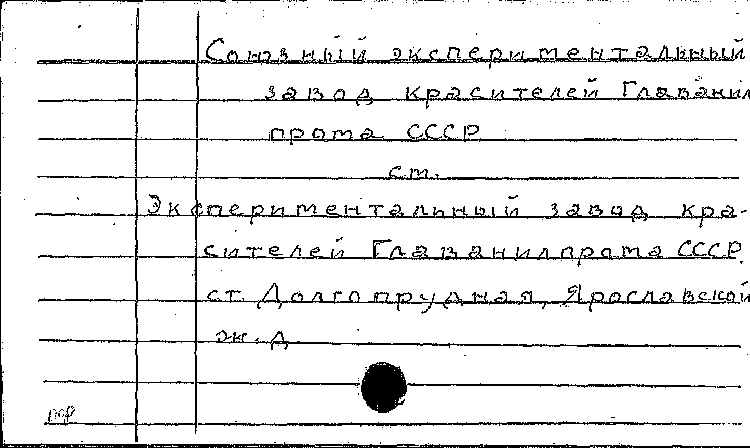 Союзный экспериментальный
завод красителей Главанил
прома СССР
см.
Экспериментальный завод кра-
сителей Главанилпрома СССР
ст. Долгопрудная, Ярославской
ж. д.